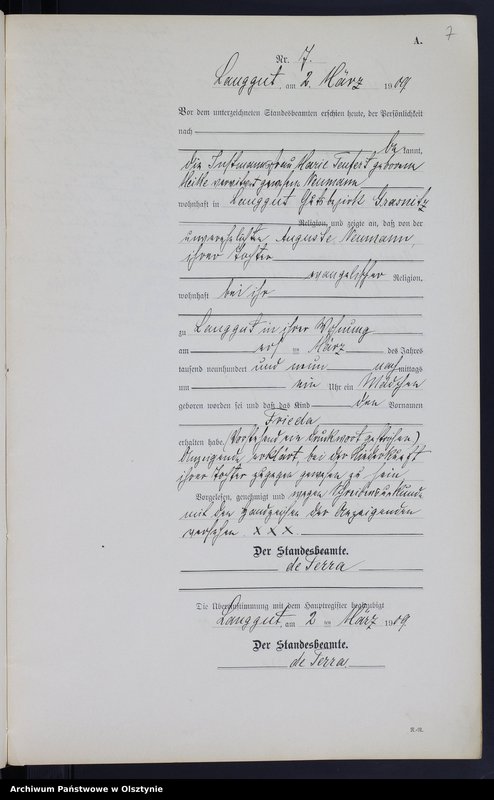 7
A.
Nr. 7.
Langgut, am 2. März 1909
Vor dem unterzeichneten Standesbeamten erschien heute, der Persönlichkeit
nach
be kannt,
die Instmannsfrau Marie Teufert geborene
verwitwet gewesene Neumann
wohnhaft in Langgut Gutsbezirk Grasnitz
Religion, und zeigte an, daß von der
unverehelichten Auguste Neumann,
ihrer Tochter
evangelischer Religion,
wohnhaft bei ihr
zu Langgut in ihrer Wohnung
am ersten März des Jahres
tausend neunhundert und neun nach mittags
um ein Uhr ein Mädchen
geboren worden sei und daß das Kind den Vornamen
Frieda
erhalten habe. (Vorstehend ein Druckwort gestrichen)
Anzeigende erklärt, bei der Niederkunft
ihrer Tochter zugegen gewesen zu sein
Vorgelesen, genehmigt und wegen Schreibensunkunde
mit den Handzeichen der Anzeigenden
versehen. X X X.
Der Standesbeamte.
de Terra
Die Übereinstimmung mit dem Hauptregister beglaubigt
Langgut, am 2 ten März 1909
Der Standesbeamte.
de Terra
Archiwum Państwowe w Olsztynie